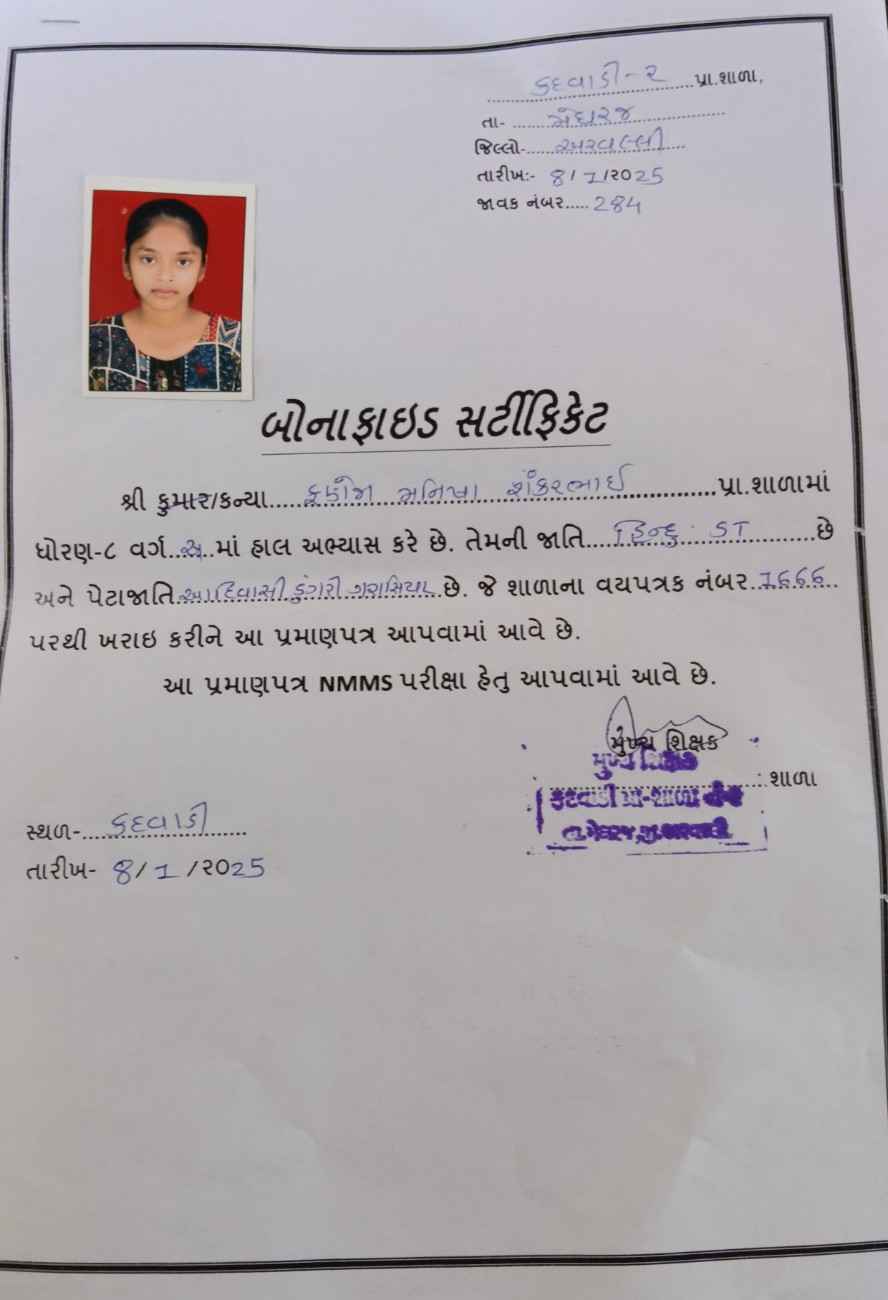 કદવાડી-૨ પ્રા.શાળા,
તા- મેઘરજ
જિલ્લો- અરવલ્લી
તારીખ:- 8/1/૨૦25
જાવક નંબર..... 284
બોનાફાઇડ સર્ટીફિકેટ
શ્રી કુમાર/કન્યા મનિષા શંકરભાઈ પ્રા.શાળામાં
ધોરણ-૮ વર્ગ અ માં હાલ અભ્યાસ કરે છે. તેમની જાતિ હિન્દુ ST છે
અને પેટાજાતિ આદિવાસી ડુંગરી ગરાસિયા છે. જે શાળાના વયપત્રક નંબર 1666
પરથી ખરાઇ કરીને આ પ્રમાણપત્ર આપવામાં આવે છે.
આ પ્રમાણપત્ર NMMS પરીક્ષા હેતુ આપવામાં આવે છે.
મુખ્ય શિક્ષક
મુખ્ય શિક્ષક
શાળા
કદવાડી પ્રા-શાળા નં-૨
તા.મેઘરજ,જી.અરવલ્લી
સ્થળ- કદવાડી
તારીખ- 8/1/૨૦25